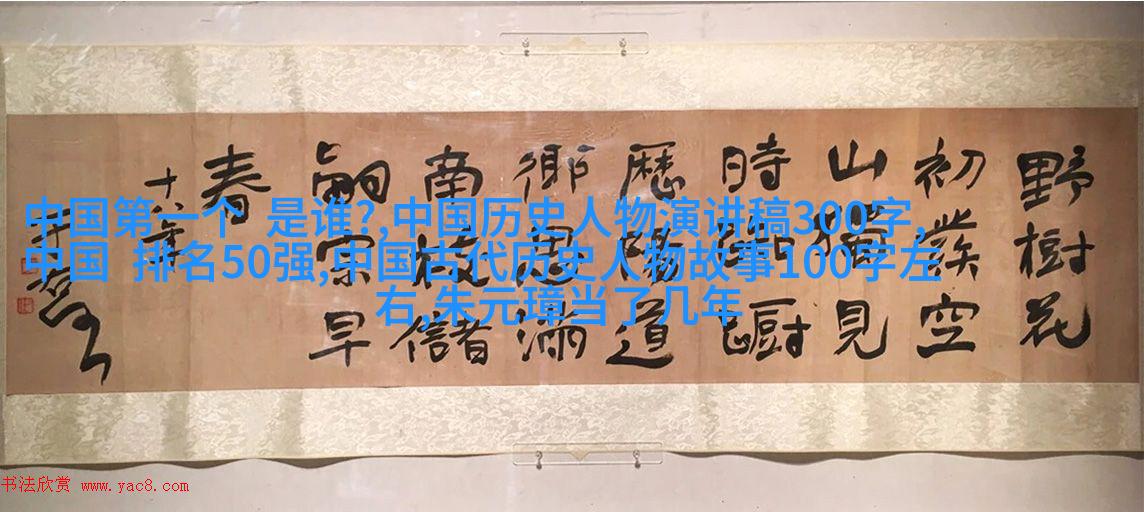 中国第一个 是谁?,中国历史人物演讲稿300字,
中国 排名50强,中国古代历史人物故事100字左
右,朱元璋当了几年
野樹花
初發空
山獨見
時踟躕
歷陽道
鄉思滿
南枝儲
嗣宗早
春
十八年
书法欣赏 www.yac8.com